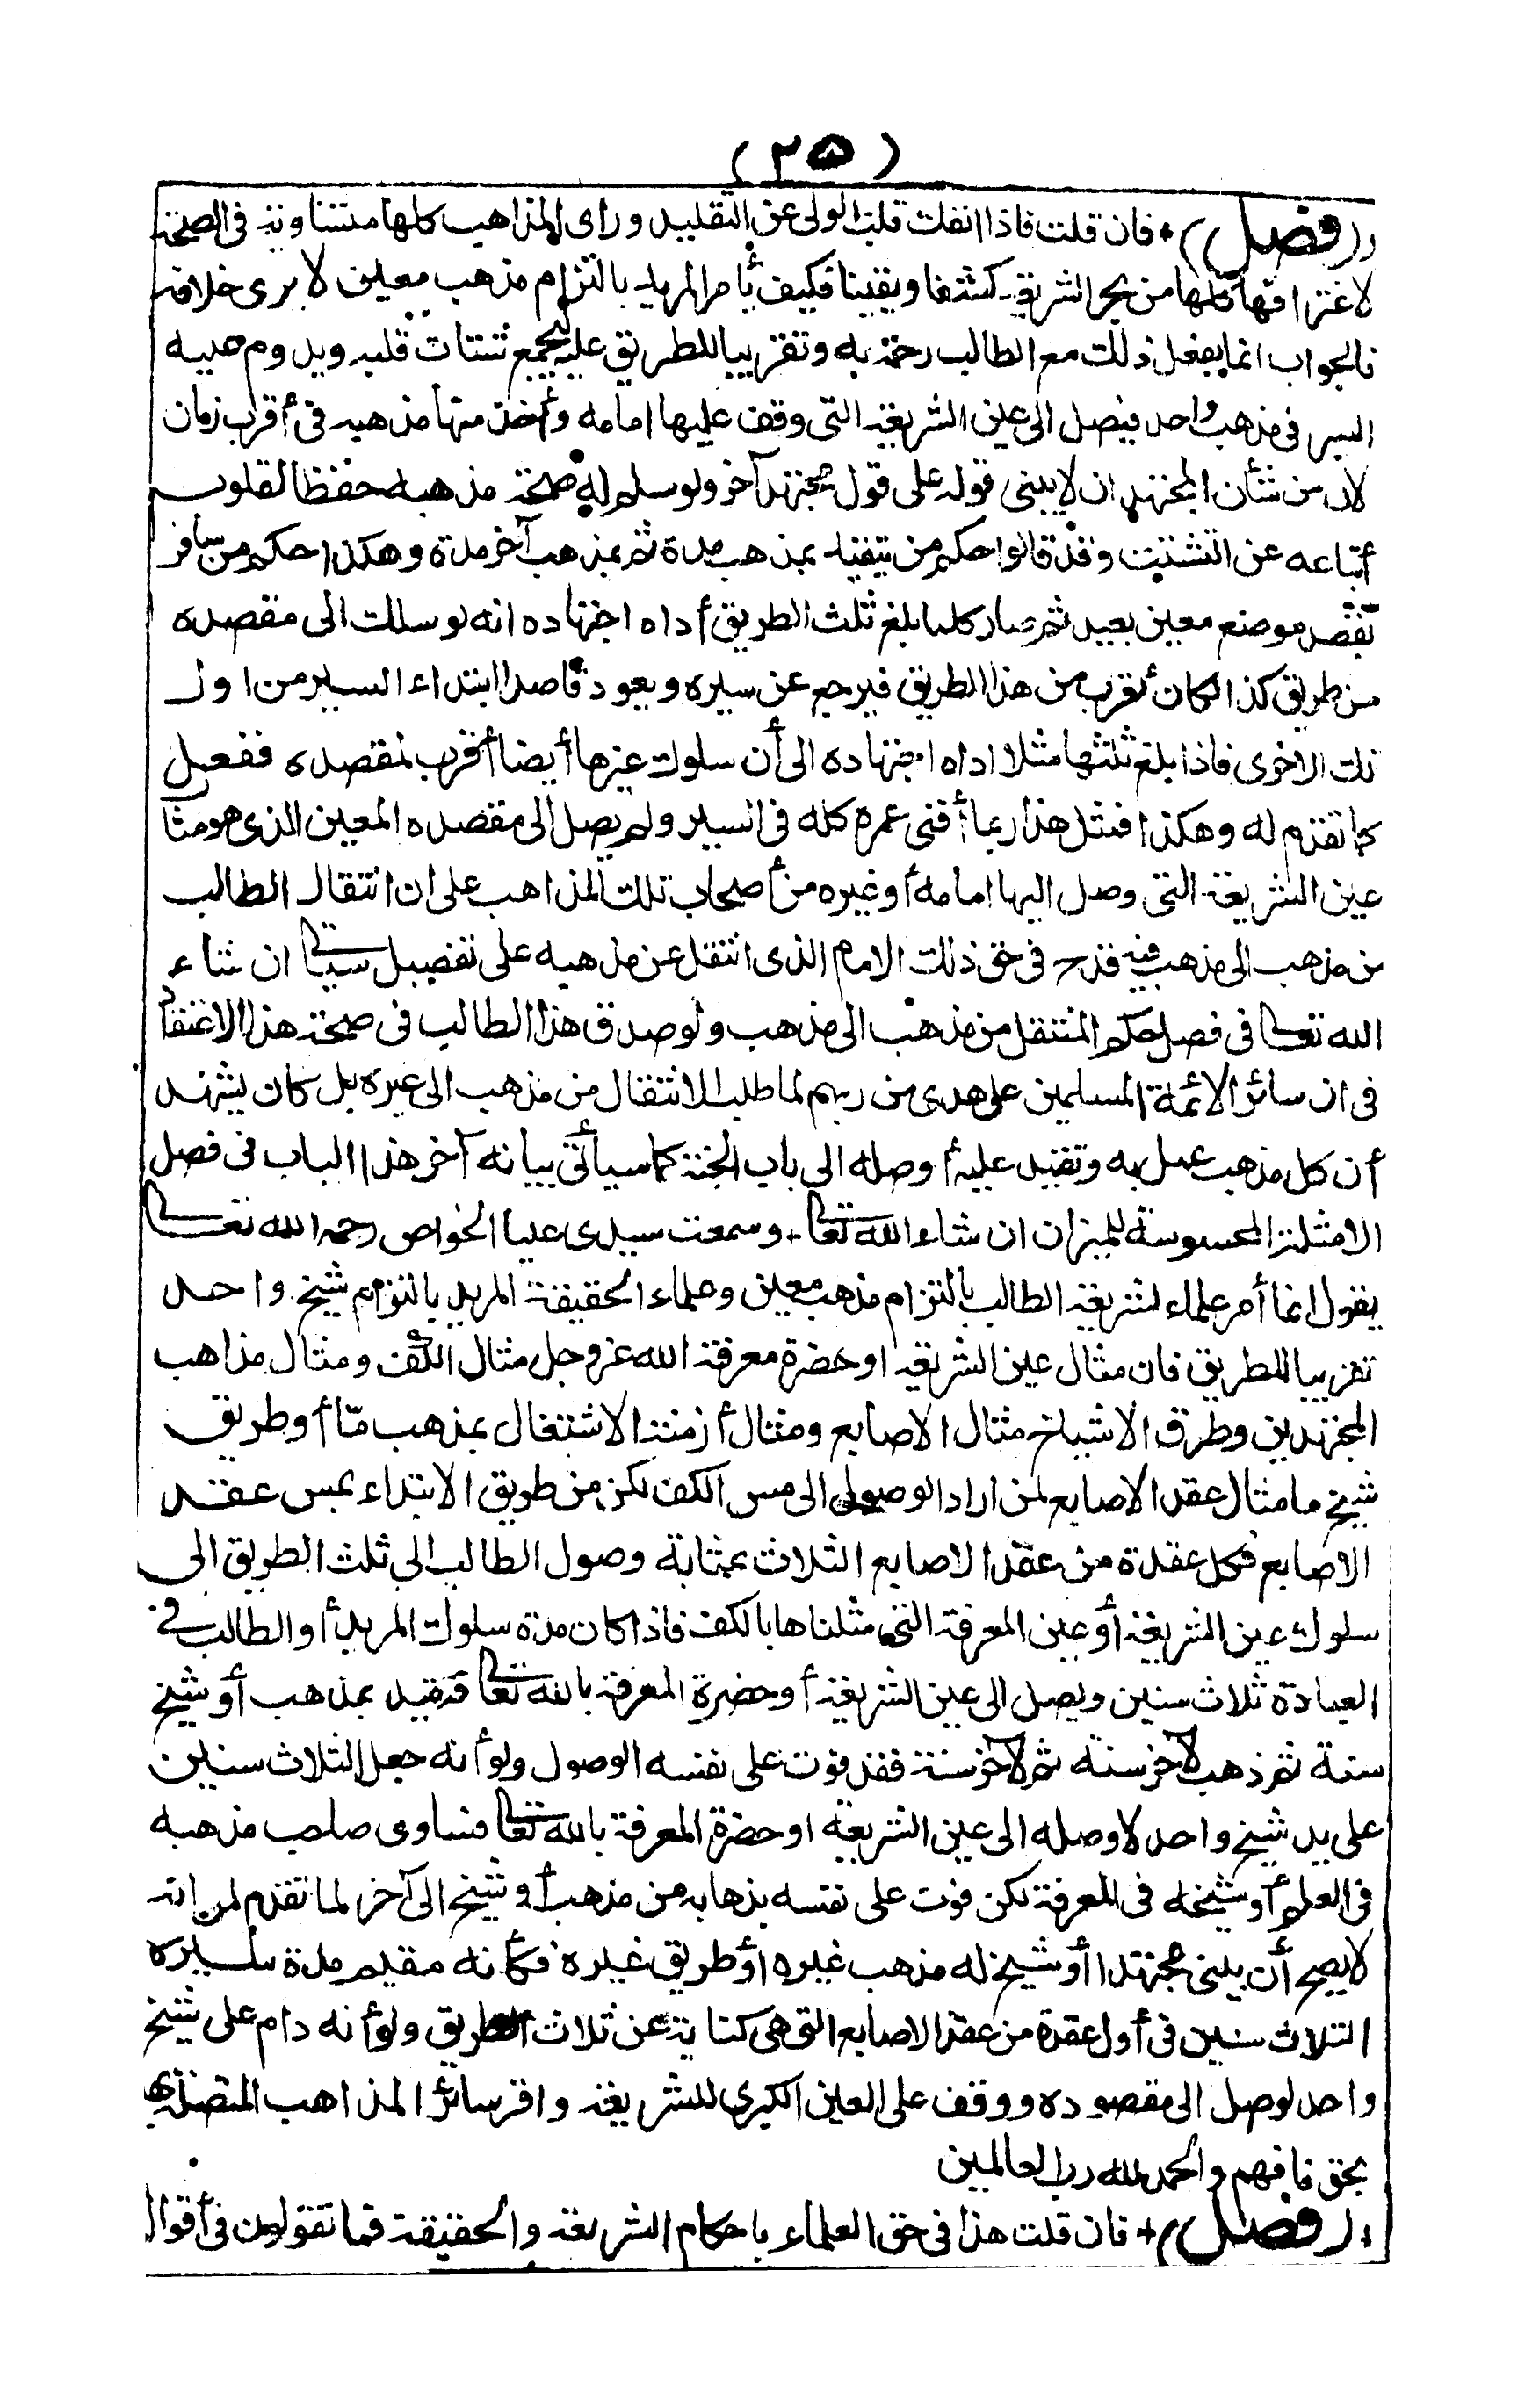 (٢٥)
((فصل)) * فان قلت فاذا انفك قلب الولى عن التقليد وراى المذاهب كلها متساوية فى الصحة
لاغترافها كلها من بحر الشريعة كشفا ويقينا فكيف يأمر المريد بالتزام مذهب معين لا يرى خلافه
فالجواب انما يفعل ذلك مع الطالب رحمة به وتقريبا للطريق عليه ليجمع شتات قلبه ويدوم عليه
السير فى مذهب واحد فيصل الى عين الشريعة التى وقف عليها امامه وأخذ منها مذهبه فى أقرب زمان
لان من شأن المجتهد ان لا يبنى قوله على قول مجتهد آخر ولو سلم له صحة مذهبه حفظا لقلوب
أتباعه عن التشتت وقد قالوا حكم من يتقيد بمذهب مدة ثم بمذهب آخر مدة وهكذا حكم من سافر
بقصد موضع معين بعيد ثم صار كلما بلغ ثلث الطريق أداه اجتهاده انه لو سلك الى مقصده
من طريق كذا لكان أقرب من هذا الطريق فيرجع عن سيره ويعود قاصدا ابتداء السير من اول
تلك الاخرى فاذا بلغ ثلثها مثلا اداه اجتهاده الى أن سلوك غيرها أيضا أقرب لمقصده ففعل
كما تقدم له وهكذا فمثل هذا ربما أفنى عمره كله فى السير ولم يصل الى مقصده المعين الذى هو مثال
عين الشريعة التى وصل اليها امامه أو غيره من أصحاب تلك المذاهب على ان انتقال الطالب
من مذهب الى مذهب فيه قدح فى حق ذلك الامام الذى انتقل عن مذهبه على تفصيل سيأتى ان شاء
الله تعالى فى فصل حكم المنتقل من مذهب الى مذهب ولو صدق هذا الطالب فى صحة هذا الاعتقاد
فى ان سائر الأئمة المسلمين على هدى من ربهم لما طلب الانتقال من مذهب الى غيره بل كان يشهد
أن كل مذهب عمل به وتقيد عليه أوصله الى باب الجنة كما سيأتى بيانه آخر هذا الباب فى فصل
الامثلة المحسوسة للميزان ان شاء الله تعالى + وسمعت سيدى عليا الخواص رحمه الله تعالى
يقول انما أمر علماء الشريعة الطالب بالتزام مذهب معين وعلماء الحقيقة المريد بالتزام شيخ واحد
تقريبا للطريق فان مثال عين الشريعة او حضرة معرفة الله عز وجل مثال الكف ومثال مذاهب
المجتهدين وطرق الاشياخ مثال الاصابع ومثال أزمنة الاشتغال بمذهب مّا أو طريق
شيخ ما مثال عقد الاصابع لمن اراد الوصول الى مس الكف لكن من طريق الابتداء بمس عقد
الاصابع فكل عقدة من عقد الاصابع الثلاث بمثابة وصول الطالب الى ثلث الطريق الى
سلوك عين الشريعة أو عين المعرفة التى مثلناها بالكف فاذا كان مدة سلوك المريد أو الطالب فى
العبادة ثلاث سنين ويصل الى عين الشريعة أو حضرة المعرفة بالله تعالى فتقيد بمذهب أو شيخ
سنة ثم ذهب لآخر سنة ثم لآخر سنة فقد فوت على نفسه الوصول ولو أنه جعل الثلاث سنين
على يد شيخ واحد لاوصله الى عين الشريعة او حضرة المعرفة بالله تعالى فساوى صاحب مذهبه
فى العلم أو شيخه فى المعرفة لكن فوت على نفسه بذهابه من مذهب أو شيخ الى آخر لما تقدم من انه
لا يصح أن يبنى مجتهد أو شيخ له مذهب غيره أو طريق غيره فكأنه مقيم مدة سيره
الثلاث سنين فى أول عقدة من عقد الاصابع التى هى كناية عن ثلاث الطريق ولو أنه دام على شيخ
واحد لوصل الى مقصوده ووقف على العين الكبرى للشريعة واقر سائر المذاهب المتصلة بها
بحق فافهم والحمد لله رب العالمين
((فصل)) + فان قلت هذا فى حق العلماء باحكام الشريعة والحقيقة فما تقولون فى أقوال